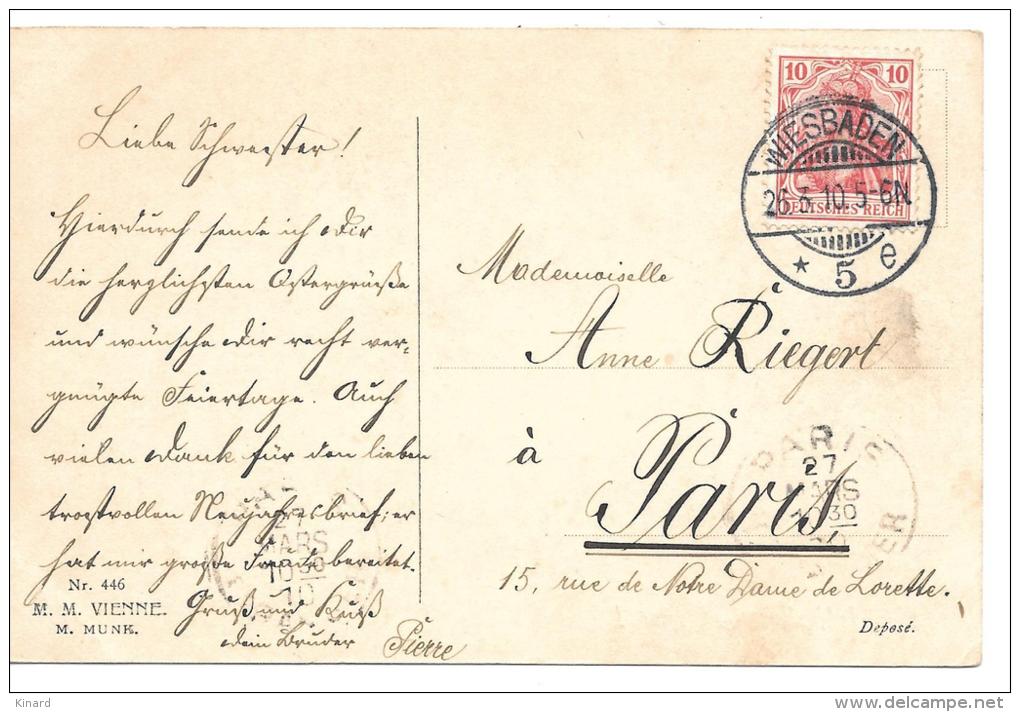 Liebe Schwester!
Hierdurch sende ich Dir
die herzlichsten Ostergrüße
und wünsche Dir recht ver-
gnügte Feiertage. Auch
vielen Dank für den lieben
trostvollen Neujahrsbrief; er
hat mir große Freude bereitet.
Gruß und Kuß
dein Bruder
Pierre
Nr. 446
M. M. VIENNE.
M. MUNK.
10 10
DEUTSCHES REICH
WIESBADEN
26.3.10.5-6N
* 5 e
Mademoiselle
Anne Riegert
à
Paris
15, rue de Notre Dame de Lorette.
Deposé.
PARIS
27
MARS
10 30
27
MARS
10 30
10
Kinard
http://www.delcampe.net